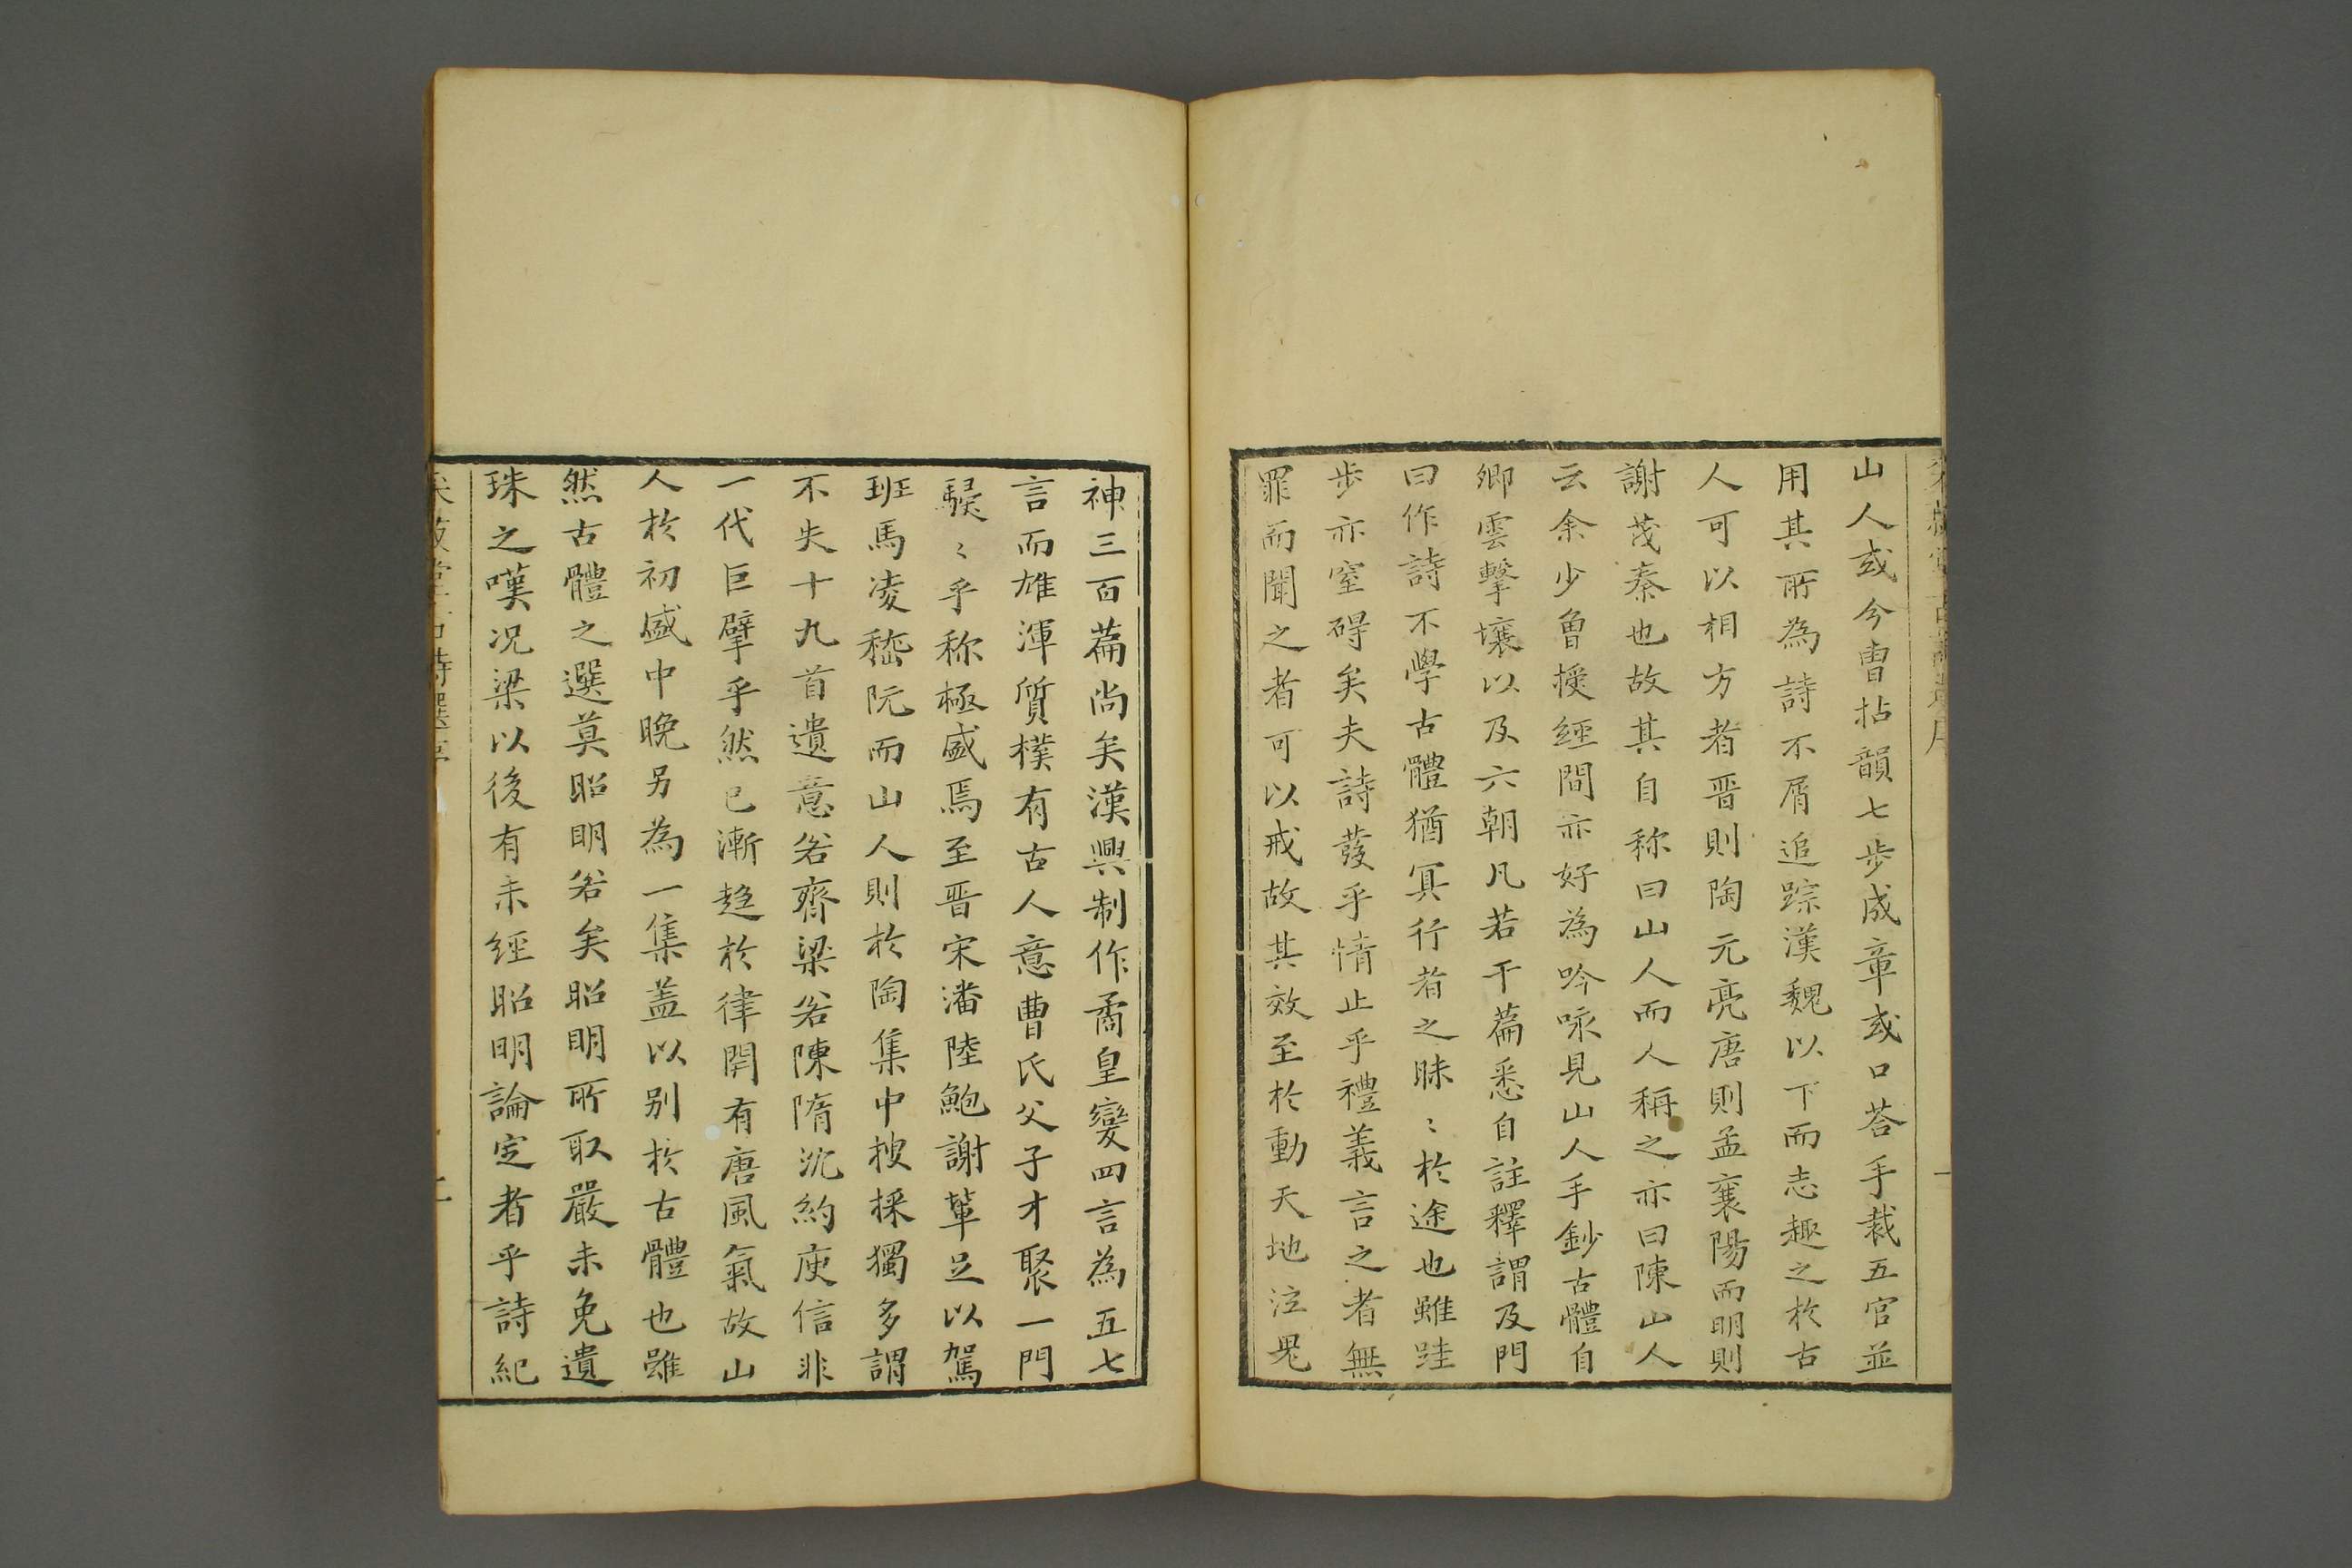 山人或分曺拈韻七步成章或口荅手裁五官並
用其所為詩不屑追踪漢魏以下而志趣之於古
人可以相方者晋則陶元亮唐則孟襄陽而明則
謝茂秦也故其自称曰山人而人稱之亦曰陳山人
云余少魯授經間亦好為吟咏見山人手鈔古體自
卿雲擊壤以及六朝凡若干篇悉自註釋謂及門
曰作詩不學古體猶冥行者之昧〻於途也雖跬
步亦窒碍矣夫詩發乎情止乎禮義言之者無
罪而聞之者可以戒故其效至於動天地泣鬼
神三百篇尚矣漢興制作矞皇變四言為五七
言而雄渾質樸有古人意曹氏父子才聚一門
駸〻乎称極盛焉至晋宋潘陸鮑謝輩足以駕
班馬凌嵇阮而山人則於陶集中搜採獨多謂
不失十九首遺意若齊梁若陳隋沈約庾信非
一代巨擘乎然已漸趋於律開有唐風氣故山
人於初盛中晚另為一集盖以别於古體也雖
然古體之選莫昭明若矣昭明所取嚴未免遺
珠之嘆况梁以後有未經昭明論定者乎詩紀